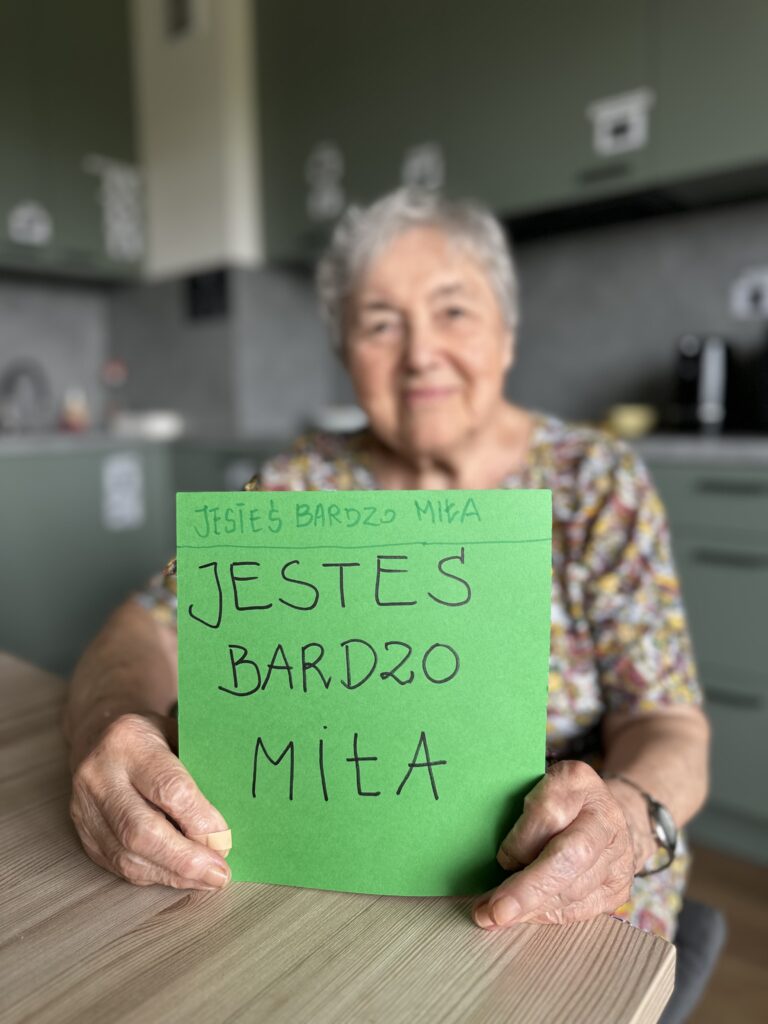 JESTEŚ BARDZO MIŁA
JESTEŚ
BARDZO
MIŁA